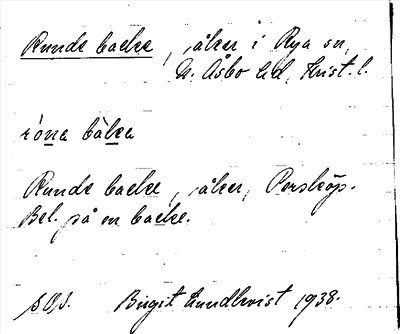 Runde backe, åker i Rya sn,
N. Åsbo hd, Krist. l.
róna bàka
Runde backe, åker, Perstorp.
Bel. på en backe.
Birgit Lundkvist 1938.